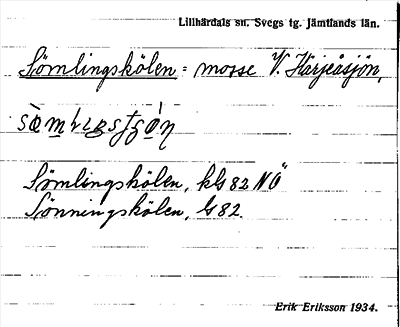 Lillhärdals sn. Svegs tg. Jämtlands län.
Sömlingskölen = mosse V. Härjeåsjön,
Sömlingskölen, kls 82 NÖ
Sönningskölen, ls 82.
Erik Eriksson 1934.